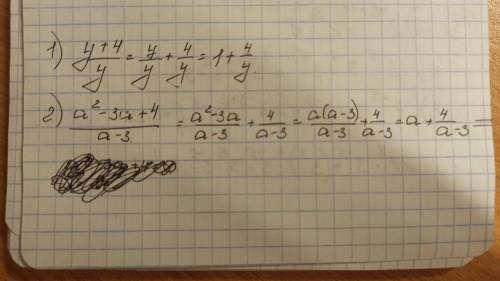 1) (y+4)/y = y/y + 4/y = 1 + 4/y.
2) (a²-3a+4)/(a-3) = (a²-3a)/(a-3) + 4/(a-3) = a(a-3)/(a-3) + 4/(a-3) = a + 4/(a-3) =